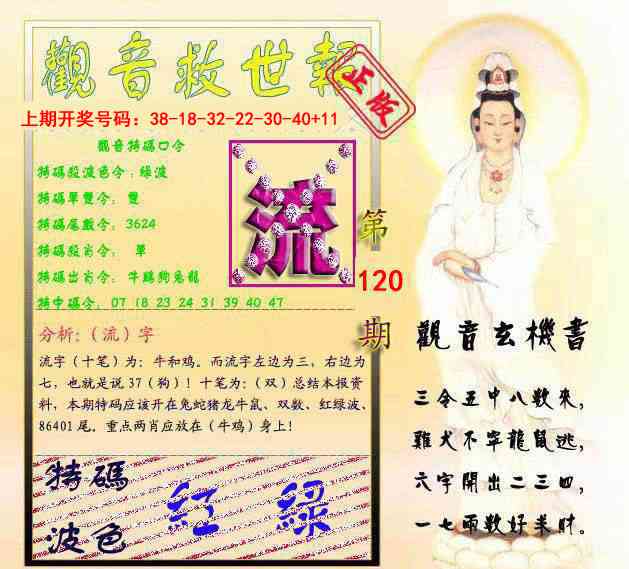 觀音救世報
正版
上期开奖号码：38-18-32-22-30-40+11
觀音特碼口令
特碼殺波色令：綠波
特碼單雙令： 雙
特碼尾數令： 3624
特碼殺肖令： 單
特碼出肖令： 牛鷄狗兔龍
特中碼令： 07 18 23 24 31 39 40 47
流
第
120
期
分析:（流）字
流字（十笔）为：牛和鸡。而流字左边为三，右边为
七，也就是说 37（狗）！十笔为：（双）总结本报资
料，本期特码应该开在兔蛇猪龙牛鼠、双数、红绿波、
86401 尾。重点两肖应放在（牛鸡）身上！
特碼
波色
紅 綠
觀音玄機書
三令五中八數來，
雞犬不寧龍鼠逃，
六字開出二三四，
一七兩數好求財。